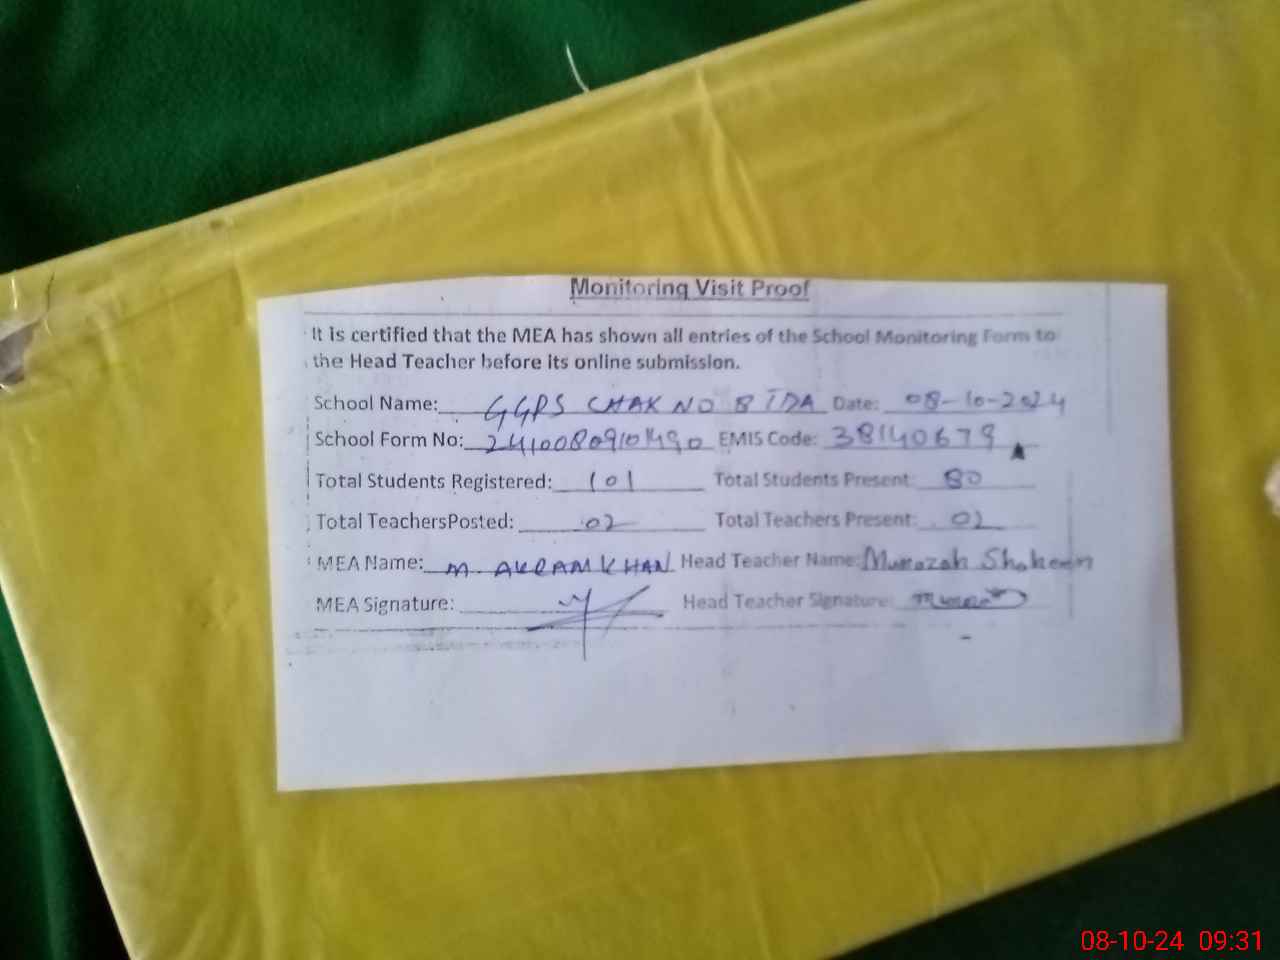 Monitoring Visit Proof
It is certified that the MEA has shown all entries of the School Monitoring Form to
the Head Teacher before its online submission.
School Name: GGPS CHAK NO 8 TDA Date: 08-10-2024
School Form No: EMIS Code: 38140679
Total Students Registered: 101 Total Students Present: 80
Total TeachersPosted: 02 Total Teachers Present: 02
MEA Name: M. AKRAM KHAN Head Teacher Name: Munazah Shaheen
MEA Signature: Head Teacher Signature:
08-10-24 09:31